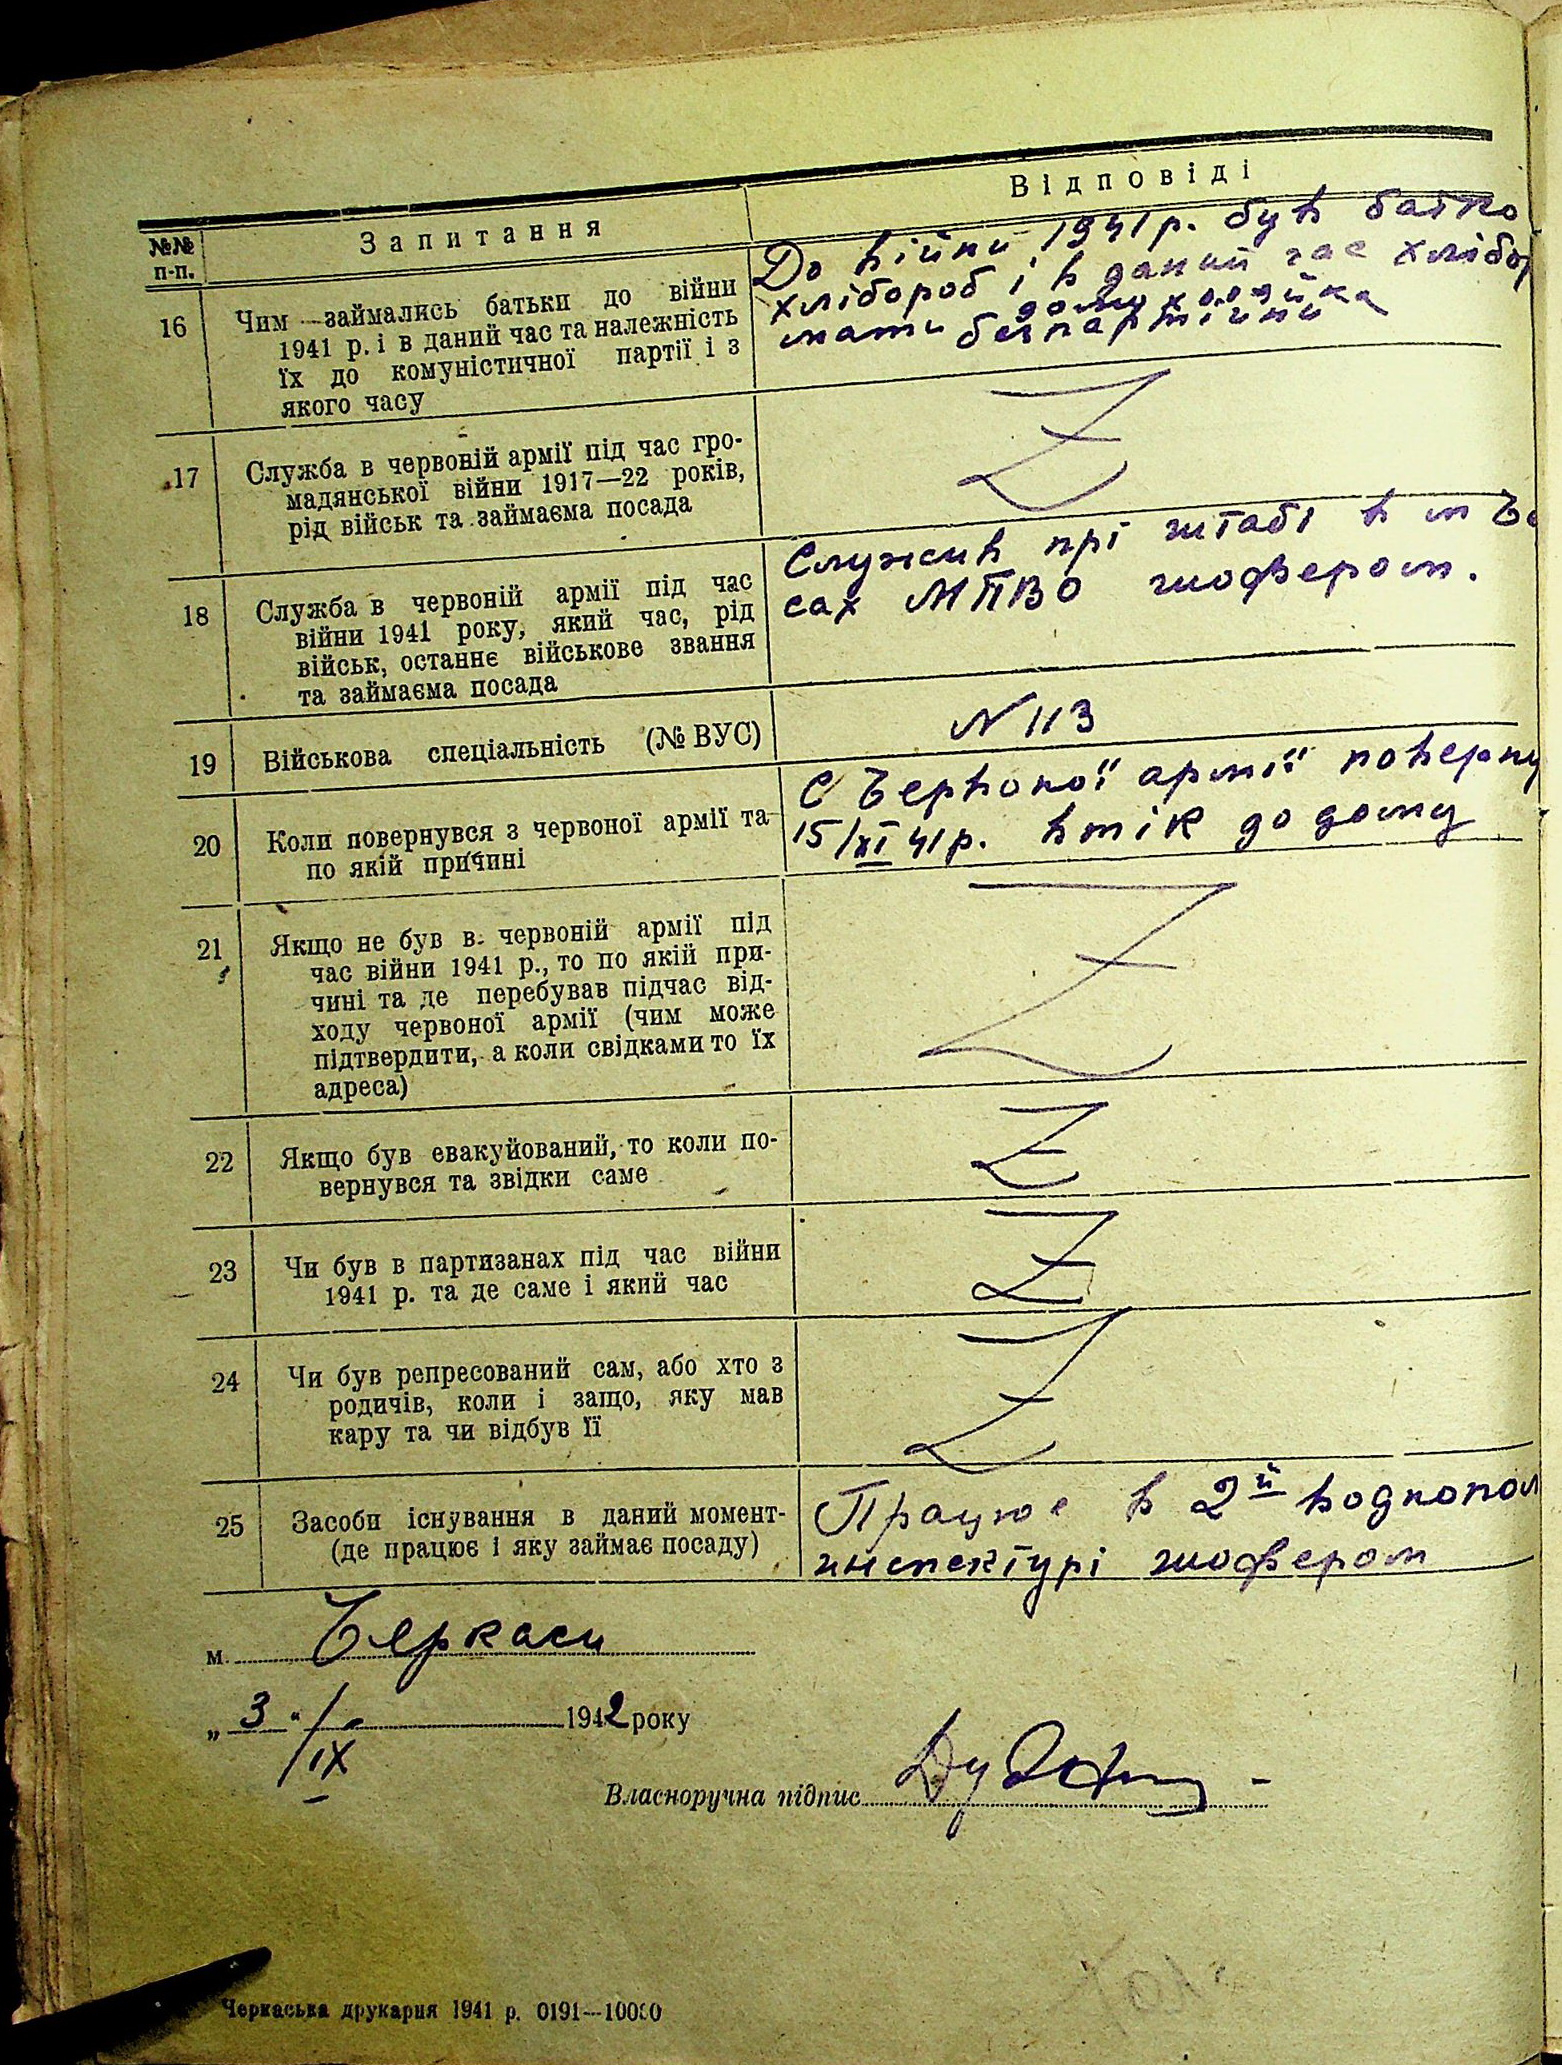 №№ п-п.
Запитання
Відповіді
16
Чим займались батьки до війни
1941 р. і в даний час та належність
їх до комуністичної партії і з
якого часу
До війни 1941 р. був батко
хлібороб і в даний час хлібор
мати домохозяйка
безпартійни
17
Служба в червоній армії під час гро-
мадянської війни 1917—22 років,
рід військ та займаєма посада
Z
18
Служба в червоній армії під час
війни 1941 року, який час, рід
військ, останнє військове звання
та займаєма посада
Служив прі штабі в м Че
сах МПВО шофером.
19
Військова спеціальність (№ ВУС)
N 113
20
Коли повернувся з червоної армії та
по якій причині
С Червоної армії поверну
15/XI 41р. втік до дому
21
Якщо не був в червоній армії під
час війни 1941 р., то по якій при-
чині та де перебував підчас від-
ходу червоної армії (чим може
підтвердити, а коли свідками то їх
адреса)
Z
22
Якщо був евакуйований, то коли по-
вернувся та звідки саме
Z
23
Чи був в партизанах під час війни
1941 р. та де саме і який час
Z
24
Чи був репресований сам, або хто з
родичів, коли і защо, яку мав
кару та чи відбув її
Z
25
Засоби існування в даний момент-
(де працює і яку займає посаду)
Працює в 2й воднопол
инспектурі шофером
м. Черкаси
„3“/IX 1942 року
Власноручна підпис
Черкаська друкарня 1941 р. 0191—10000